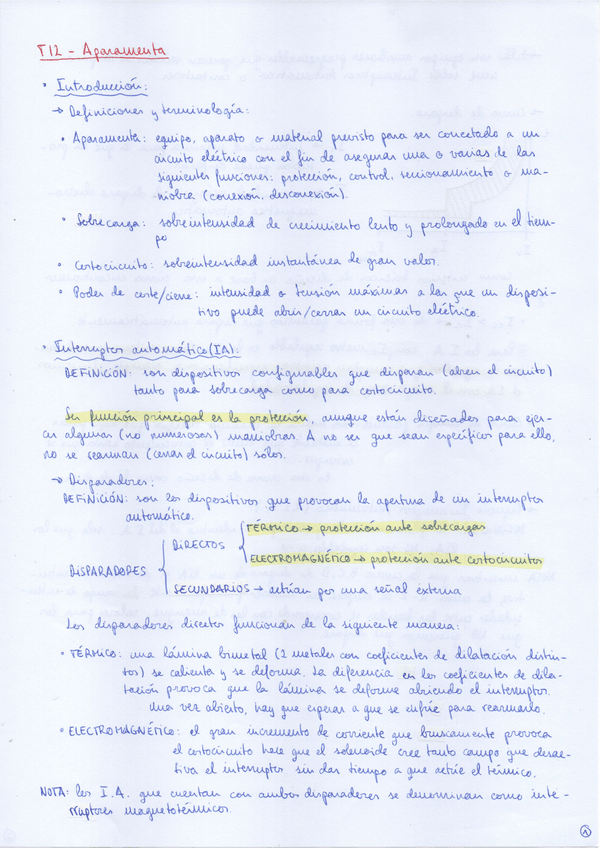 T12 - Aparamenta
• Introducción:
→ Definiciones y terminología:
• Aparamenta: equipo, aparato o material previsto para ser conectado a un
circuito eléctrico con el fin de asegurar una o varias de las
siguientes funciones: protección, control, seccionamiento o ma-
niobra (conexión, desconexión).
• Sobrecarga: sobreintensidad de crecimiento lento y prolongado en el tiem-
po
• Cortocircuito: sobreintensidad instantánea de gran valor.
• Poder de corte/cierre: intensidad o tensión máximas a las que un disposi-
tivo puede abrir/cerrar un circuito eléctrico.
• Interruptor automático (IA):
DEFINICIÓN: son dispositivos configurables que disparan (abren el circuito)
tanto para sobrecarga como para cortocircuito.
Su función principal es la protección, aunque están diseñados para ejer-
cer algunas (no numerosas) maniobras. A no ser que sean específicos para ello,
no se rearman (cierran el circuito) solos.
→ Disparadores:
DEFINICIÓN: son los dispositivos que provocan la apertura de un interruptor
automático.
TÉRMICO → protección ante sobrecargas
DIRECTOS
ELECTROMAGNÉTICO → protección ante cortocircuitos
DISPARADORES
SECUNDARIOS → actúan por una señal externa
Los disparadores directos funcionan de la siguiente manera:
• TÉRMICO: una lámina bimetal (2 metales con coeficientes de dilatación distin-
tos) se calienta y se deforma. La diferencia en los coeficientes de dila-
tación provoca que la lámina se deforme abriendo el interruptor.
Una vez abierto, hay que esperar a que se enfríe para rearmarlo.
• ELECTROMAGNÉTICO: el gran incremento de corriente que bruscamente provoca
el cortocircuito hace que el solenoide cree tanto campo que desac-
tiva el interruptor sin dar tiempo a que actúe el térmico.
NOTA: los I.A. que cuentan con ambos disparadores se denominan como inte-
rruptores magnetotérmicos.
1